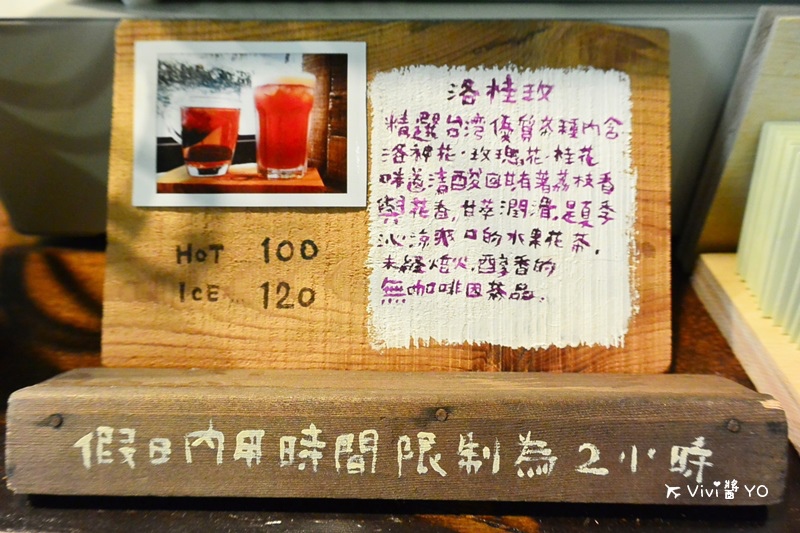 洛桂玫
精選台湾優質茶種內含
洛神花·玫瑰花·桂花
味道清酸回甘有著荔枝香
與花香,甘萃潤滑,是夏季
沁涼爽口的水果花茶,
未經焙火,醇香的
無咖啡因茶品.
HOT 100
ICE 120
假日內用時間限制為2小時
Vivi醬YO